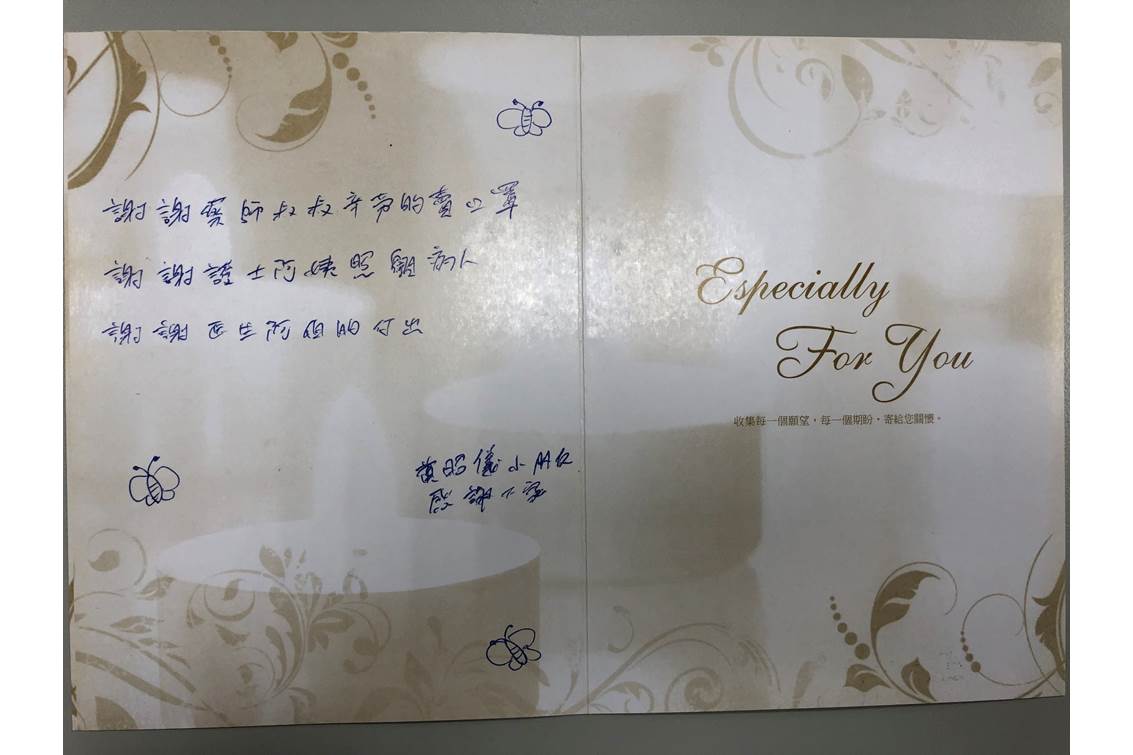 謝謝藥師叔叔辛勞的賣口罩
謝謝護士阿姨照顧病人
謝謝醫生阿伯的付出
黃昭儀小朋友
感謝不盡
Especially
For You
收集每一個願望，每一個期盼，寄給您關懷。